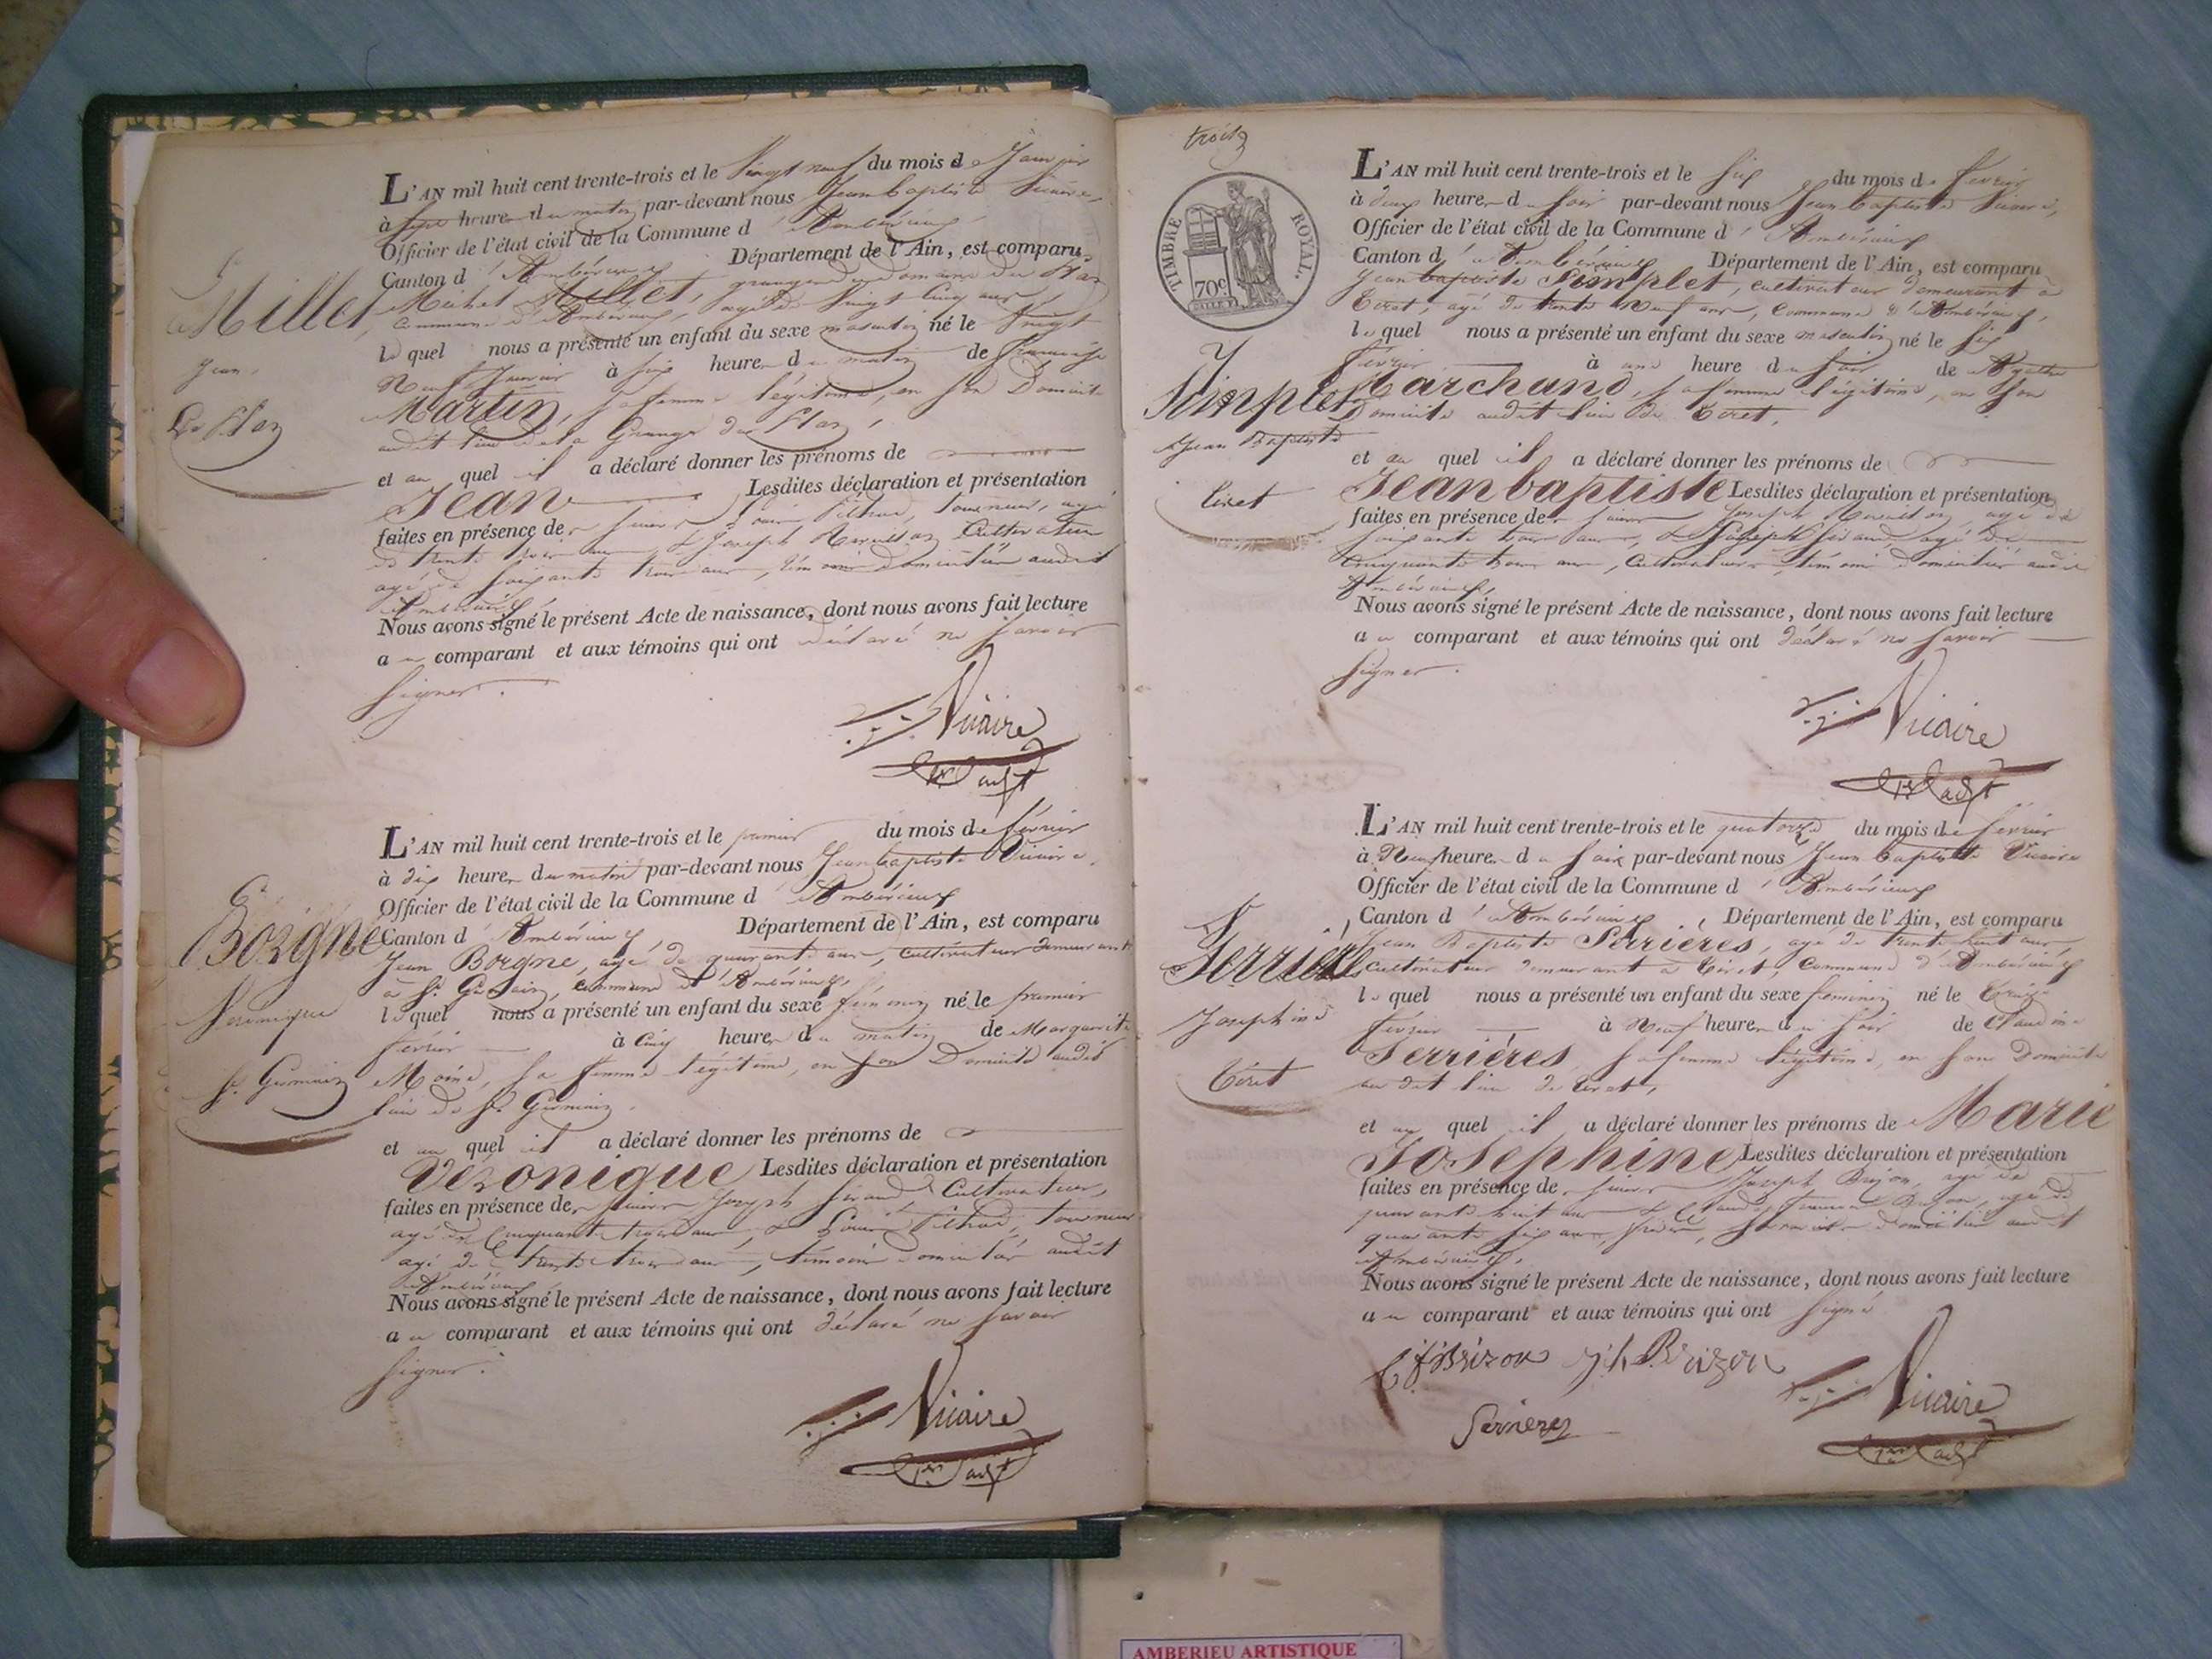 Millet
Jean
L'AN mil huit cent trente-trois et le vingt neuf du mois de Janvier
à sept heures du matin par-devant nous Jean baptiste Vicaire,
Officier de l'état civil de la Commune d'Ambérieux
Canton d'Ambérieux Département de l'Ain, est comparu
Michel Millet, granger du domaine du
Commune d'Ambérieux, agé de vingt cinq ans,
le quel nous a présenté un enfant du sexe masculin né le vingt
Neuf Janvier à six heures du matin de Françoise
Martin, sa femme légitime, en son Domicile
audit lieu de la Grange du
et au quel il a déclaré donner les prénoms de
Jean Lesdites déclaration et présentation
faites en présence des sieurs Louis tourneur, agé
de trente trois ans, & Joseph Cultivateur
agé de soixante trois ans, témoins domiciliés audit
Ambérieux
Nous avons signé le présent Acte de naissance, dont nous avons fait lecture
au comparant et aux témoins qui ont déclaré ne savoir
signer.
Vicaire
Borgne
Véronique
St Germain
L'AN mil huit cent trente-trois et le premier du mois de février
à dix heures du matin par-devant nous Jean baptiste Vicaire,
Officier de l'état civil de la Commune d'Ambérieux
Canton d'Ambérieux Département de l'Ain, est comparu
Jean Borgne, agé de quarante ans, cultivateur demeurant
à St Germain, commune d'Ambérieux,
le quel nous a présenté un enfant du sexe féminin né le premier
février à cinq heures du matin de Marguerite
Moine, sa femme légitime, en son Domicile audit
lieu de St Germain.
et au quel il a déclaré donner les prénoms de
Véronique Lesdites déclaration et présentation
faites en présence des sieurs Joseph Sirand Cultivateur,
agé de Cinquante trois ans, & Louis tourneur
agé de trente trois ans, témoins domiciliés audit
Ambérieux
Nous avons signé le présent Acte de naissance, dont nous avons fait lecture
au comparant et aux témoins qui ont déclaré ne savoir
signer.
Vicaire
trois
TIMBRE ROYAL.
70c
Simplet
Jean Baptiste
Tiret
L'AN mil huit cent trente-trois et le six du mois de février
à deux heures du soir par-devant nous Jean baptiste Vicaire,
Officier de l'état civil de la Commune d'Ambérieux
Canton d'Ambérieux Département de l'Ain, est comparu
Jean baptiste Simplet, cultivateur demeurant à
Tiret, agé de trente Neuf ans, commune d'Ambérieux,
le quel nous a présenté un enfant du sexe masculin né le six
février à une heure du soir de Agathe
Marchand, sa femme légitime, en son
Domicile audit lieu de Tiret,
et au quel il a déclaré donner les prénoms de
Jean baptiste Lesdites déclaration et présentation
faites en présence des sieurs Joseph agé de
soixante trois ans, & Joseph Sirand, agé de
cinquante trois ans, cultivateurs, témoins domiciliés audit
Ambérieux,
Nous avons signé le présent Acte de naissance, dont nous avons fait lecture
au comparant et aux témoins qui ont déclaré ne savoir
signer.
Vicaire
Serrières
Josephine
Tiret
L'AN mil huit cent trente-trois et le quatorze du mois de février
à Neuf heures du soir par-devant nous Jean baptiste Vicaire
Officier de l'état civil de la Commune d'Ambérieux
Canton d'Ambérieux, Département de l'Ain, est comparu
Jean Baptiste Serrières, agé de trente huit ans,
cultivateur demeurant à Tiret, commune d'Ambérieux
le quel nous a présenté un enfant du sexe feminin né le treize
février à Neuf heures du soir de Claudine
Serrières, sa femme légitime, en son Domicile
au dit lieu de tiret,
et au quel il a déclaré donner les prénoms de Marie
Josephine Lesdites déclaration et présentation
faites en présence des sieurs Joseph Brizon, agé de
quarante huit ans & Claude françois Brizon, agé de
quarante six ans, domiciliés audit
Ambérieux,
Nous avons signé le présent Acte de naissance, dont nous avons fait lecture
au comparant et aux témoins qui ont signé
C f Brizon Jh Brizon
Vicaire
Serrieres
AMBERIEU ARTISTIQUE